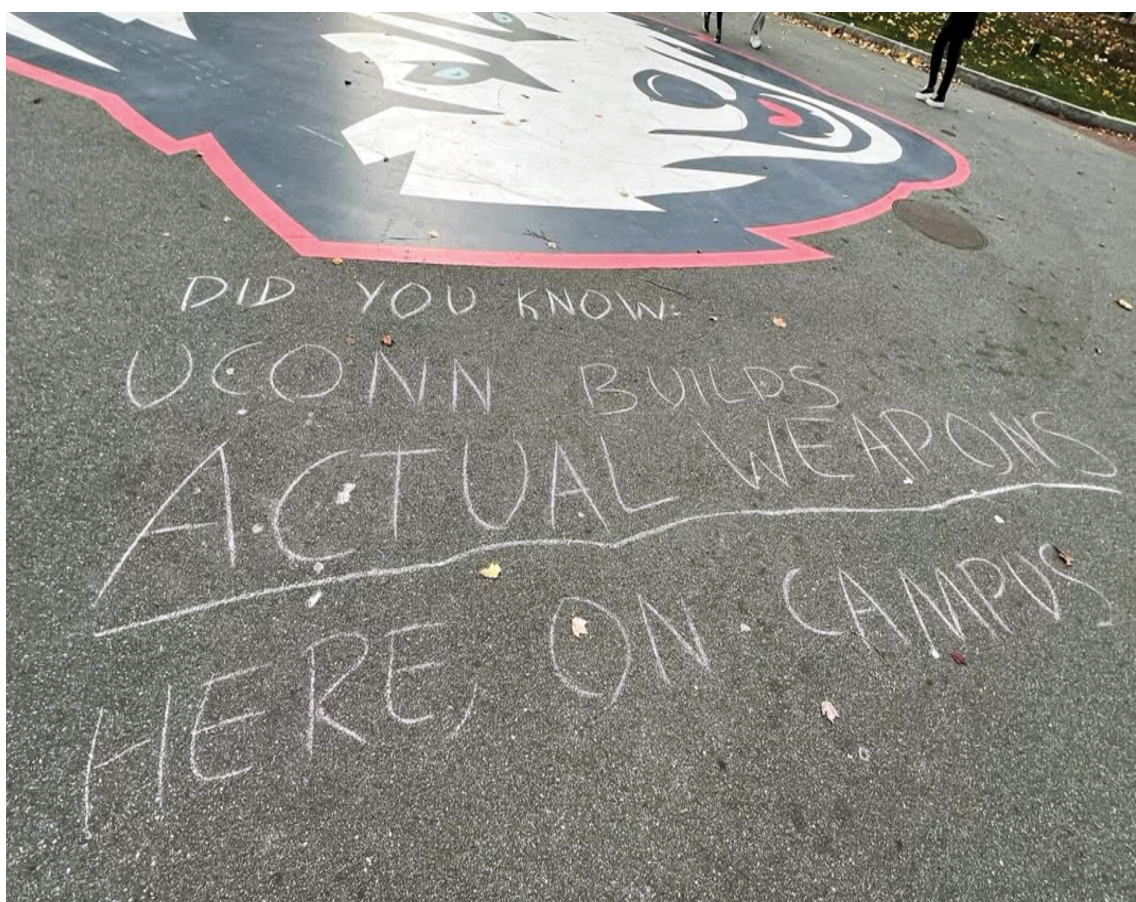 DID YOU KNOW:
UCONN BUILDS
ACTUAL WEAPONS
HERE, ON CAMPUS.